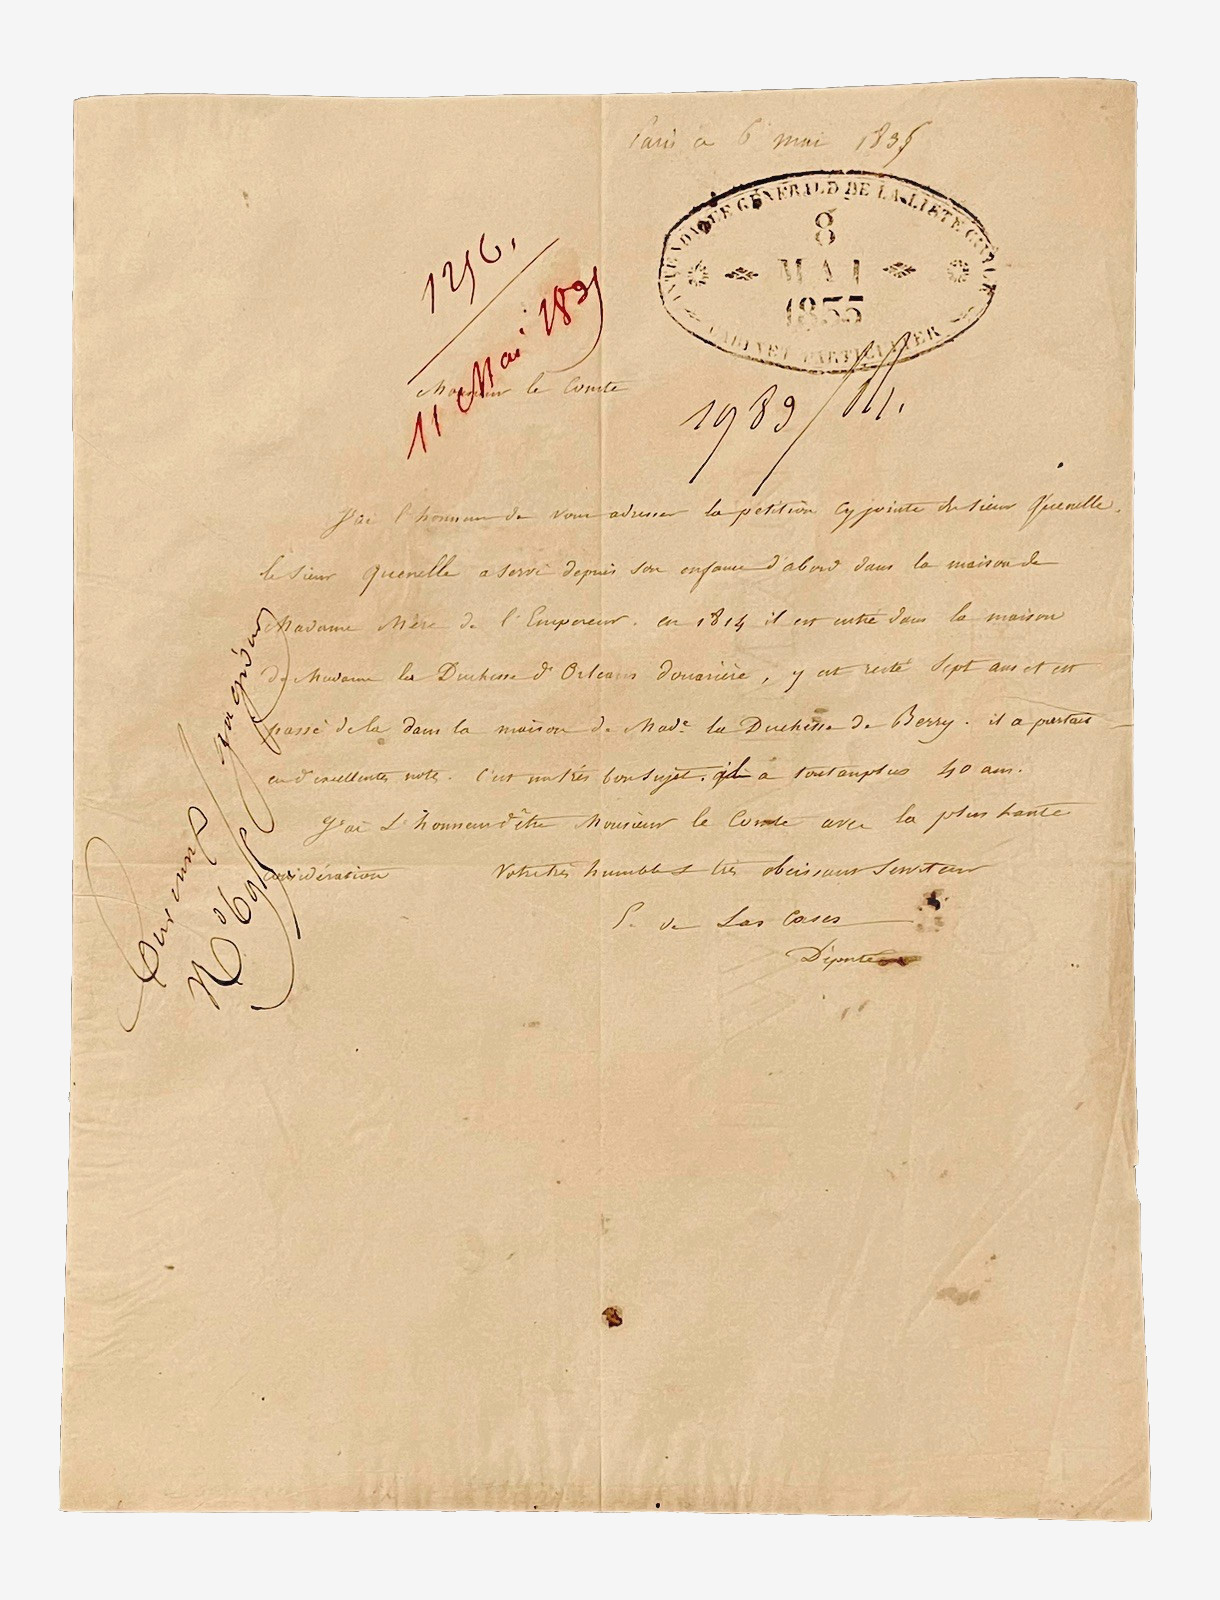 Paris ce 6 mai 1835
INTENDANCE GÉNÉRALE DE LA LISTE CIVILE
8
MAI
1835
CABINET PARTICULIER
1256.
11 Mai 1835
1989
Monsieur le Comte
J'ai l'honneur de vous adresser la petition cy jointe du sieur Quenelle.
le sieur Quenelle a servi depuis son enfance d'abord dans la maison de
Madame Mère de l'Empereur. en 1814 il est entré dans la maison
de Madame la Duchesse d'Orleans douairière, y est resté sept ans et est
passé de la dans la maison de Made la Duchesse de Berry. il a partout
eu d'excellentes note. C'est un très bon sujet. il a tout au plus 40 ans.
J'ai l'honneur d'être Monsieur le Comte avec la plus haute
considération Votre très humble et très obeissant serviteur
E. de Las Cases
Député